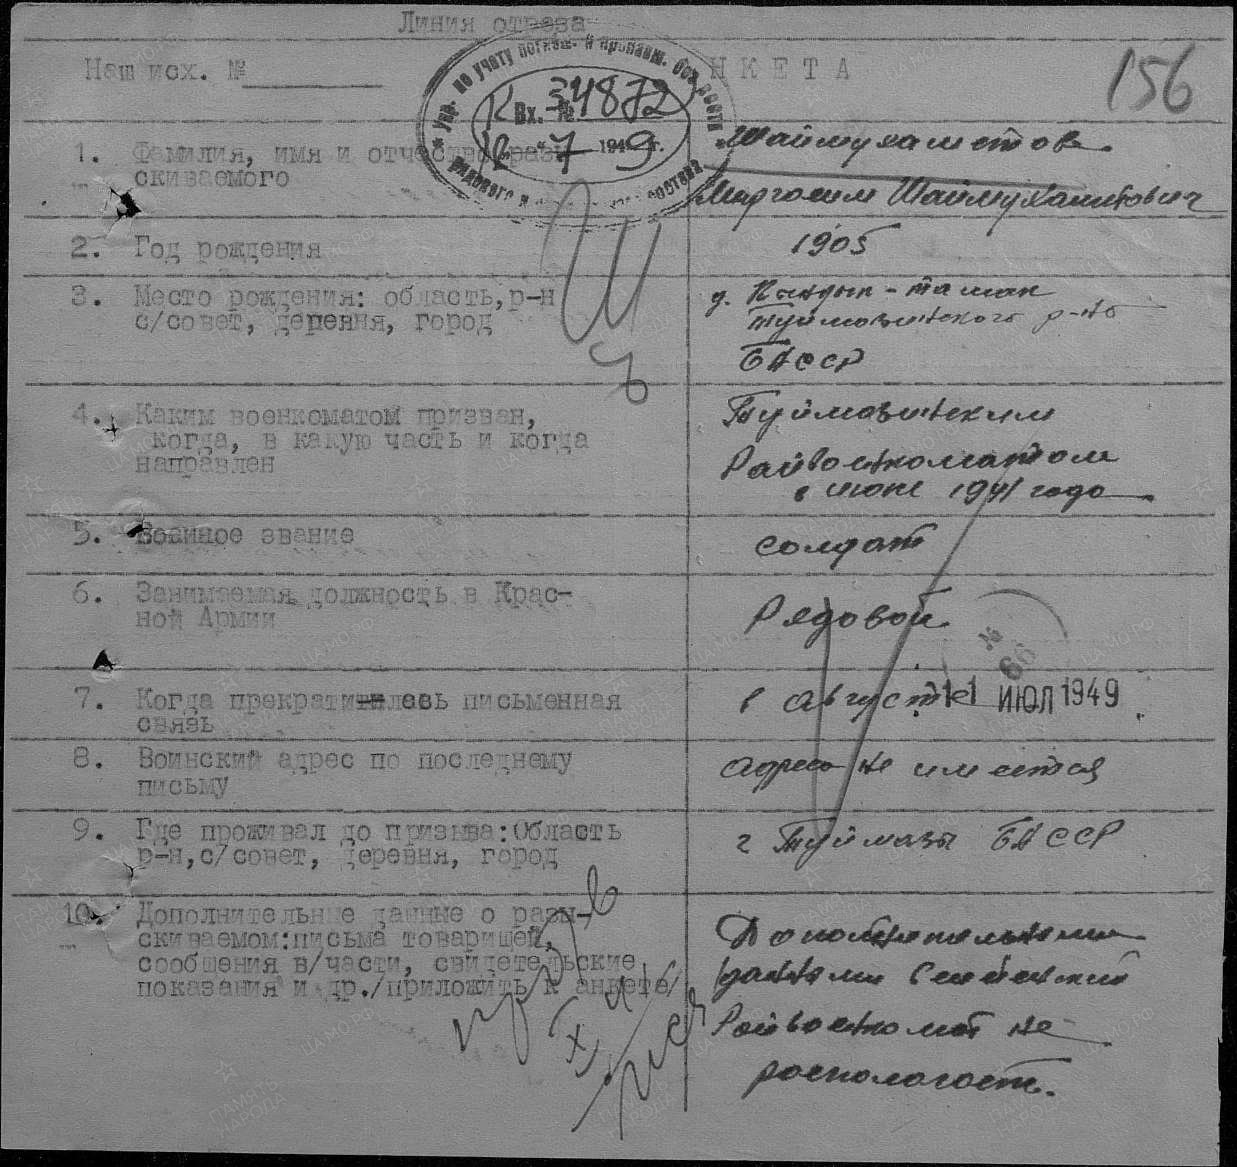 Линия отреза
Наш исх. №
НКЕТА
156
Упр. по учету погибш. и пропавш. без вести
рядового и
Вх. № 34872
7 1949 г.
1. Фамилия, имя и отчество разы
скиваемого
Шаймухаметов
Шаймухаметович
2. Год рождения
1905
3. Место рождения: область, р-н
с/совет, деревня, город
д. Кандры-тамак
Туймазинского р-на
БАССР
4. Каким военкоматом призван,
когда, в какую часть и когда
направлен
Туймазинским
Райвоенкоматом
в июне 1941 года
5. Военное звание
солдат
6. Занимаемая должность в Крас-
ной Армии
Рядовой
№ 66
7. Когда прекратилась письменная
связь
в августе
11 ИЮЛ 1949
8. Воинский адрес по последнему
письму
адреса не имеется
9. Где проживал до призыва: Область
р-н, с/совет, деревня, город
г Туймазы БАССР
10. Дополнительные данные о разы-
скиваемом: письма товарищей,
сообщения в/части, свидетельские
показания и др./приложить к анкете/
Дополнительными
данными
Райвоенкомат не
роспологает.